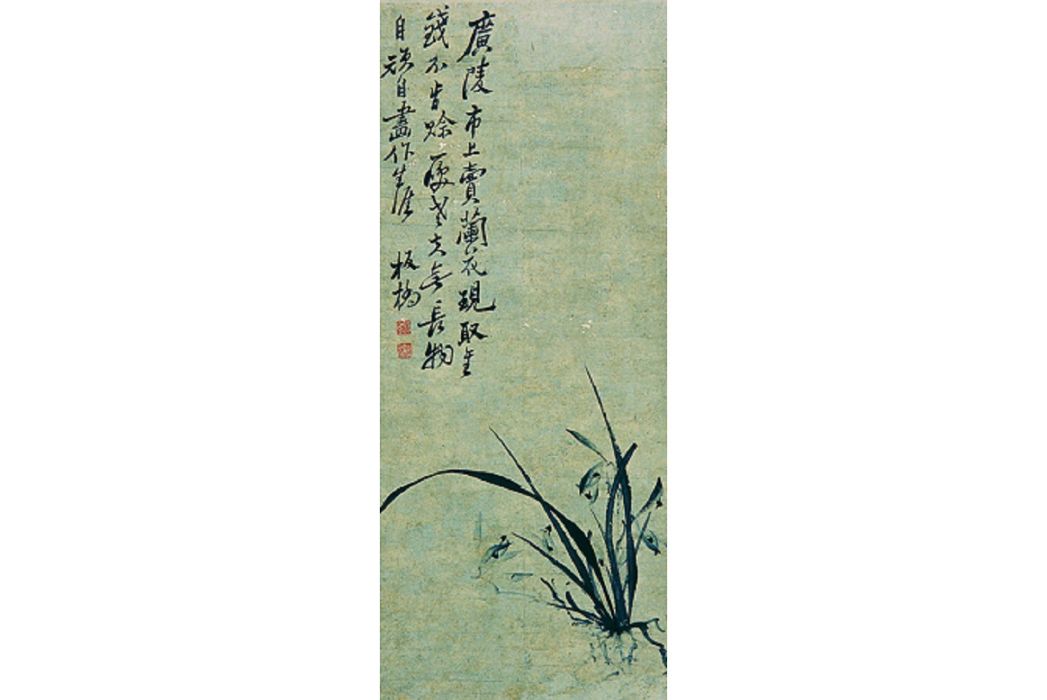 廣陵市上賣蘭花現取金
錢不肯賒一老夫無長物
自自畫作生涯
板橋